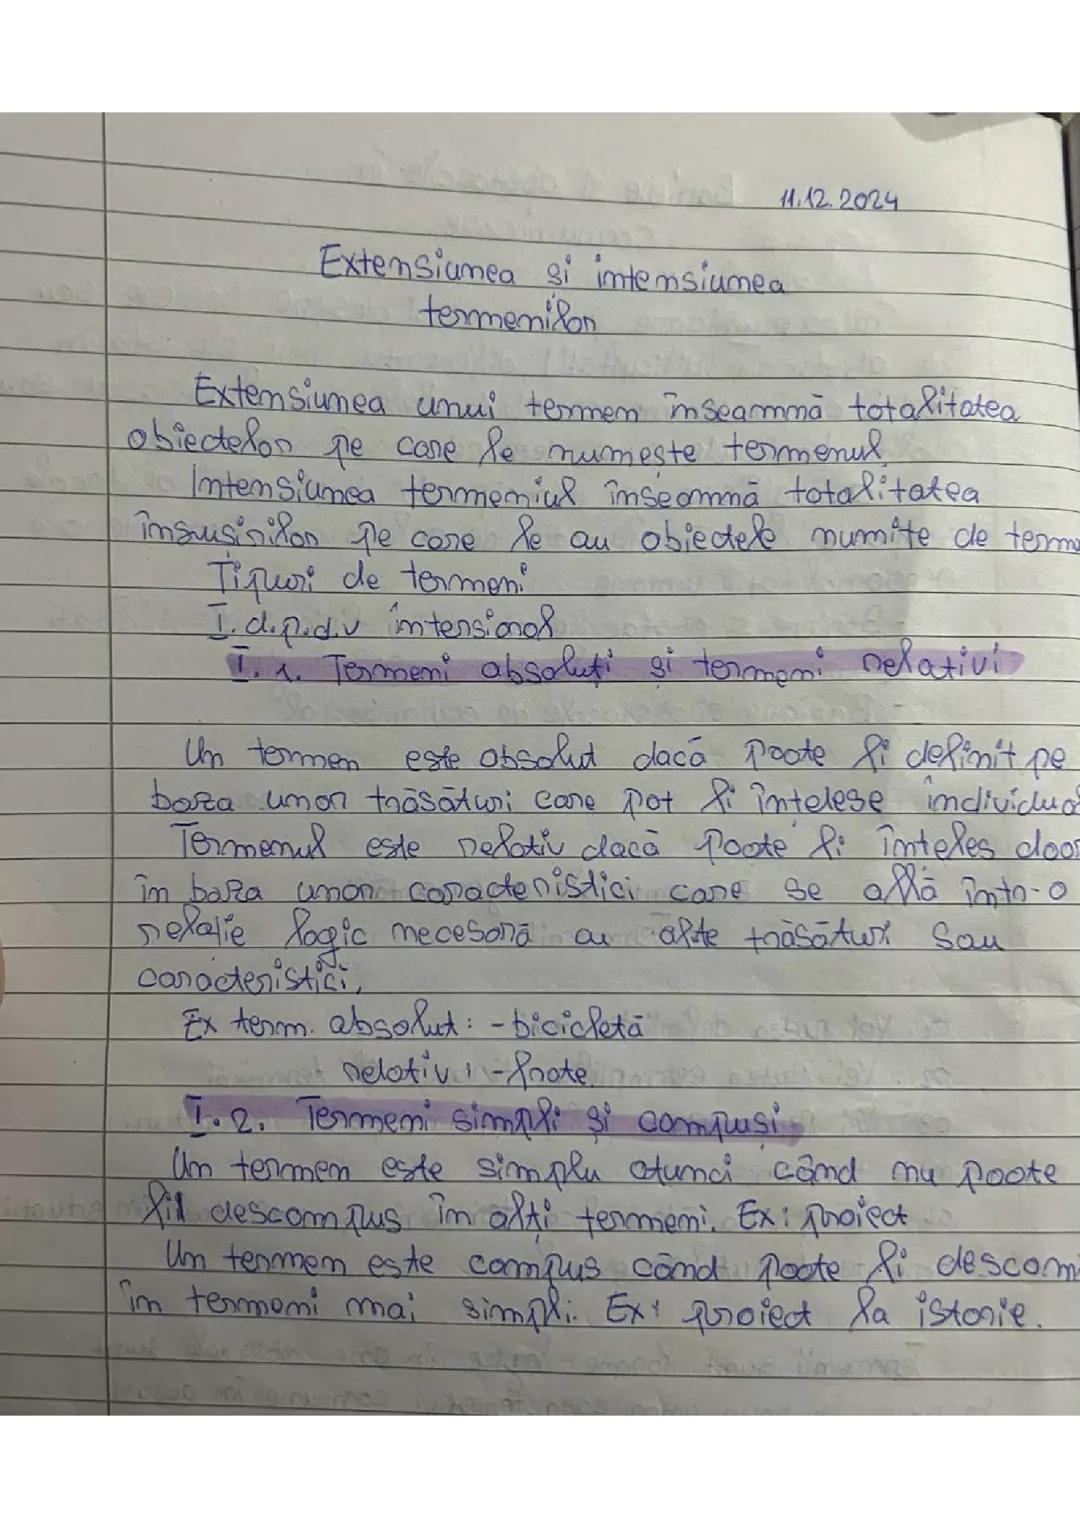 11.12.2024
Extensiunea și intensiunea
termenilor
Extensiunea unui termen înseamnă totalitatea
obiectelor pe care le numește termenul
Intensiunea termeniul înseamnă totalitatea
însusirilor pe care le au obiectele numite de terme
Tipuri de termeni
I. d.p.d.v intensional
I. 1. Termeni absoluți și termeni relativi
Un termen este absolut dacă poate fi definit pe
baza unor trăsături care pot fi întelese individual
Termenul este relativ dacă poate fi înteles doar
în baza unor caracteristici care se află într-o
relație logic necesară cu alte trăsături sau
caracteristici.
Ex term. absolut: - bicicletă
relativ: - frate
I. 2. Termeni simpli și compuși
Un termen este simplu atunci când nu poate
fil descompus în alți termeni. Ex: proiect
Un termen este compus când poate fi descom
în termeni mai simpli. Ex: proiect la istorie.